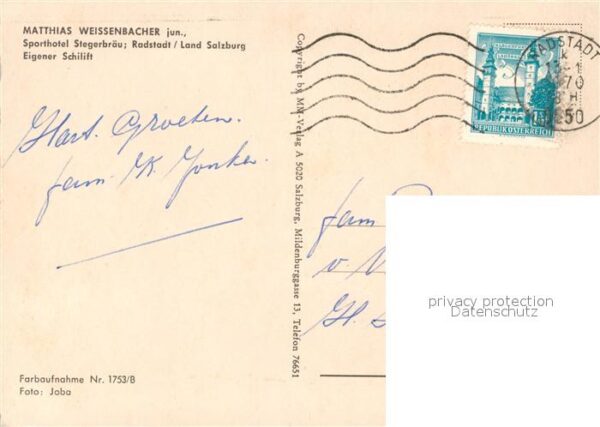 MATTHIAS WEISSENBACHER jun.,
Sporthotel Stegerbräu; Radstadt / Land Salzburg
Eigener Schilift
Hart. Groeten.
fam. K. Jonker.
Farbaufnahme Nr. 1753/B
Foto: Joba
Copyright by MM-Verlag A 5020 Salzburg, Mildenburggasse 13, Telefon 76651
RADSTADT
70
REPUBLIK ÖSTERREICH
fam
v.
privacy protection
Datenschutz